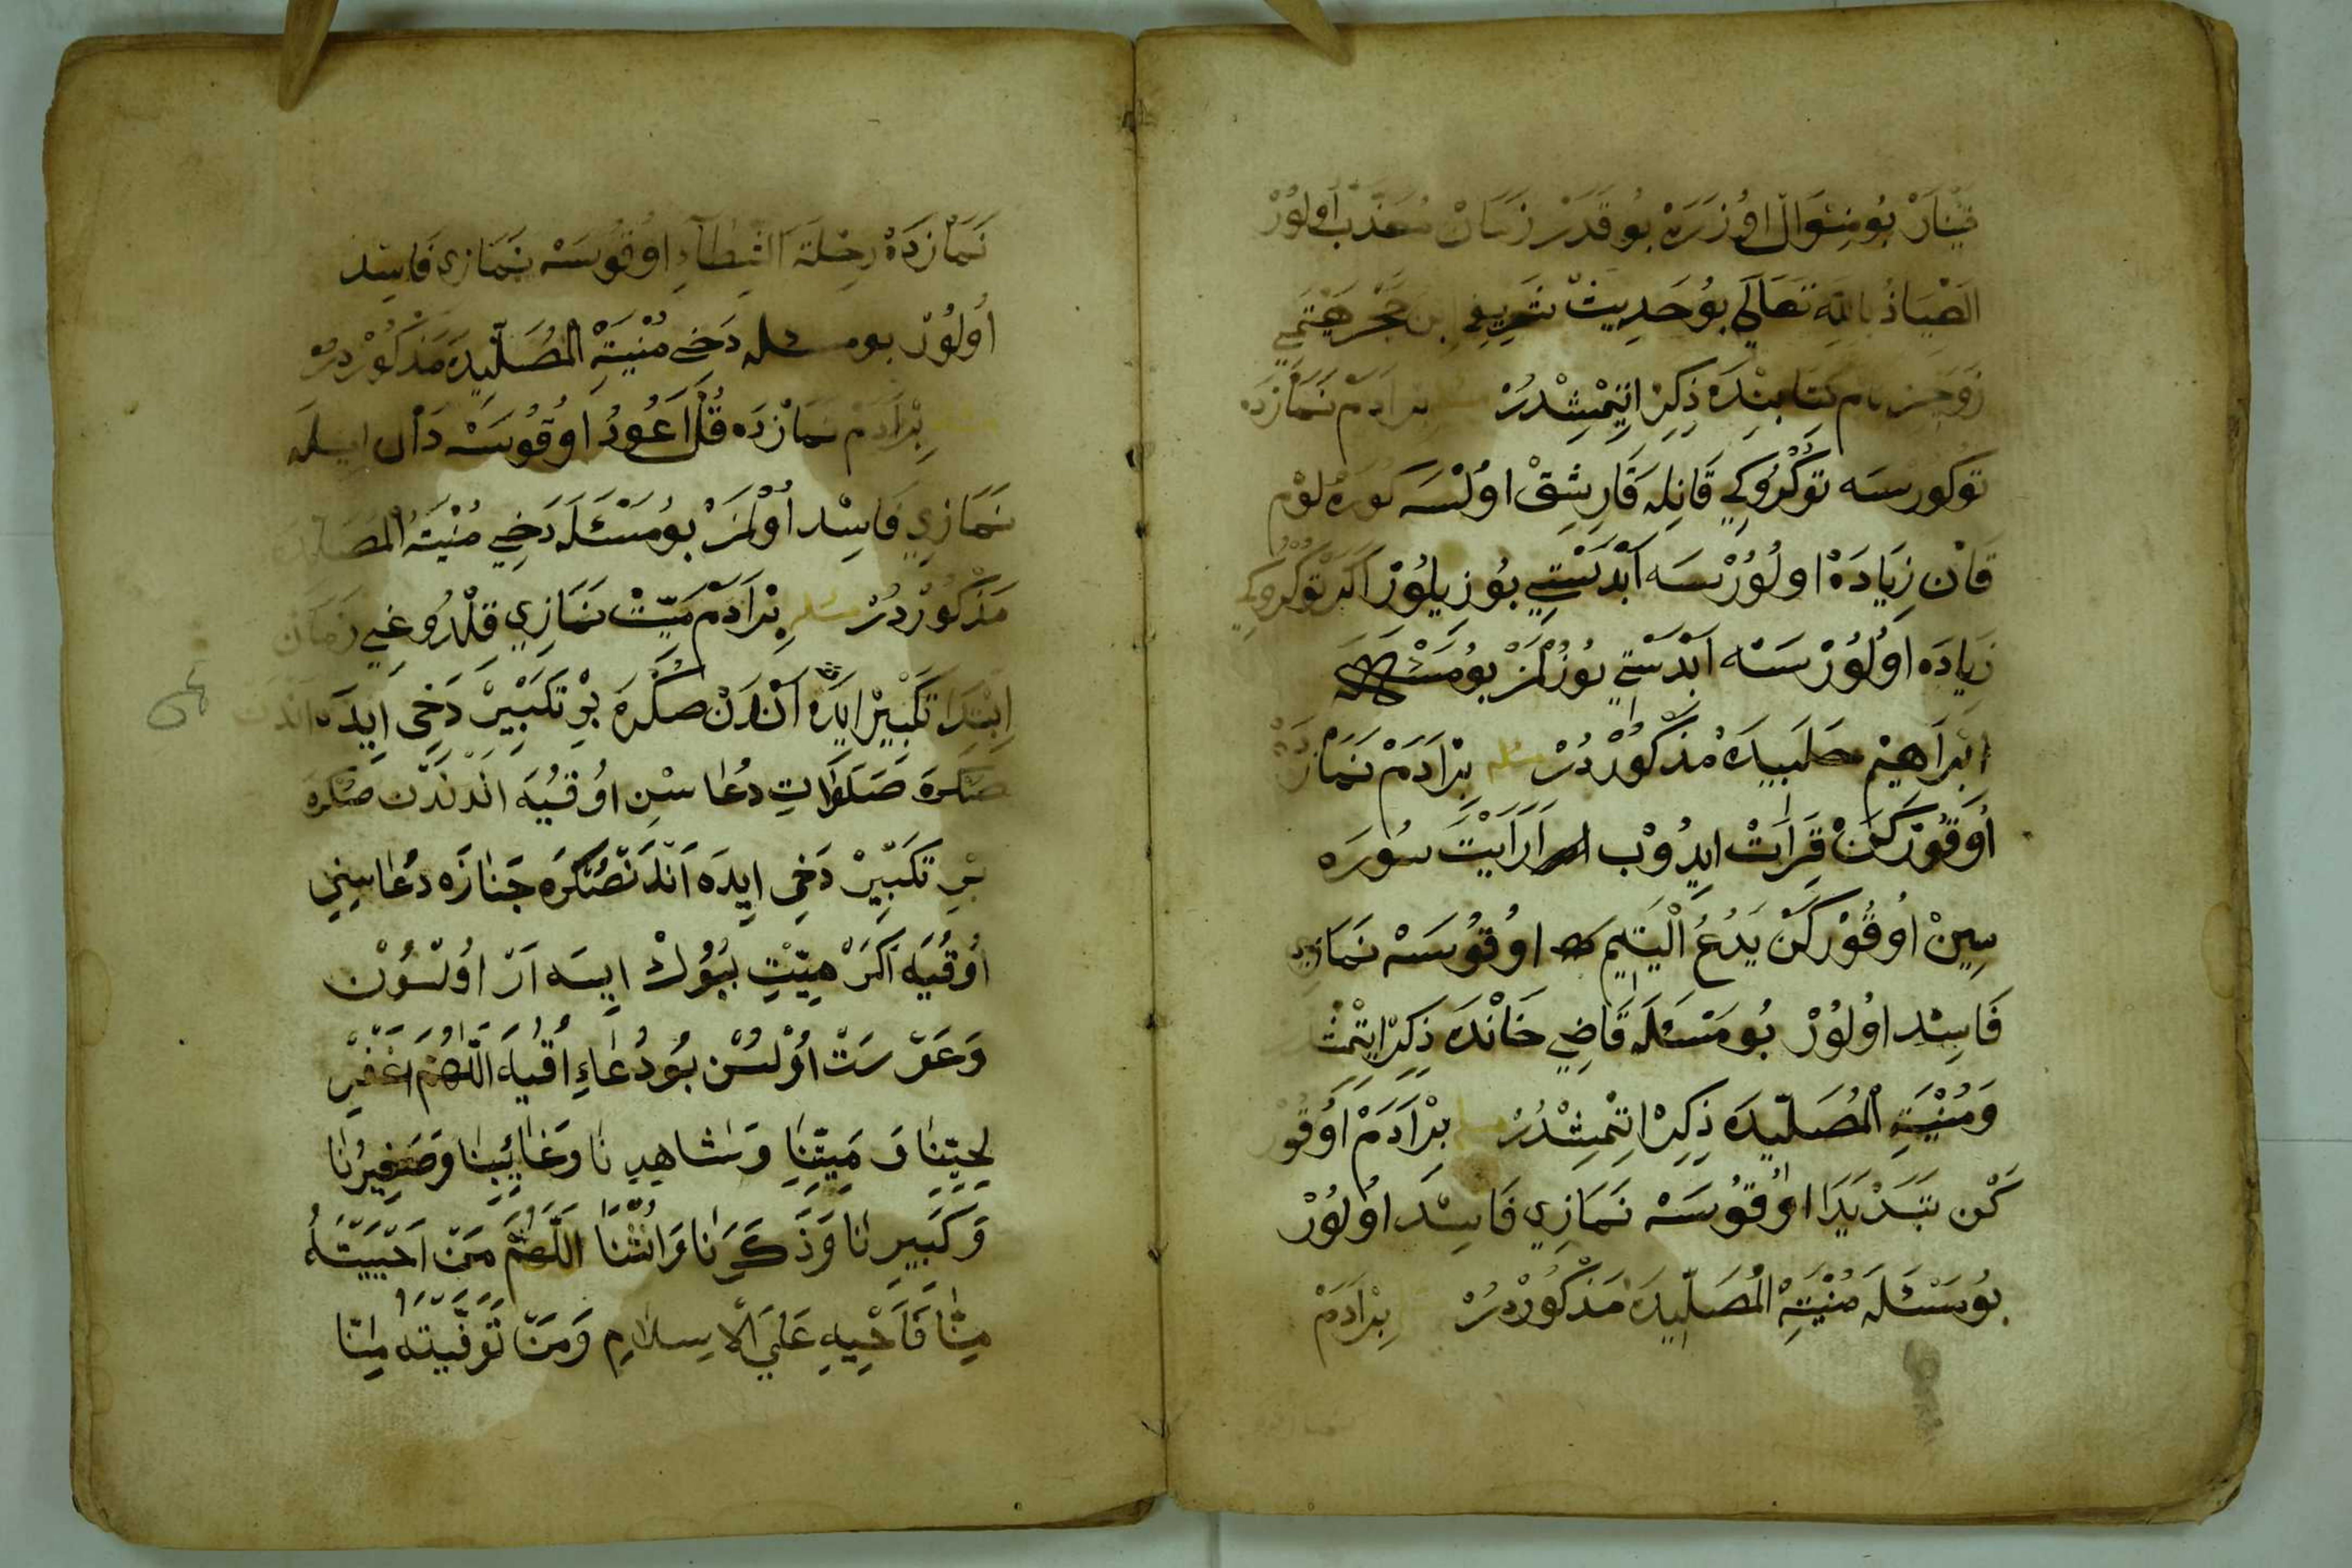 قَيْنَارْ بُو مِنْوَالْ اُوزَرَهْ بُو قَدَرْ زَمَانْ مُعَذَّبْ اُولُورْ
اَلْعِيَاذُ بِاللّٰهِ تَعَالَي بُو حَدِيثْ شَرِيفِ اِبْن حَجَرْ هَيْتَمِي
زَوَاجِرْ نَام كِتَابِنْدَه ذِكِرْ اِتْمِشْدُرْ مسئله بِرْ اَدَمْ نَمَازْدَه
تُوكُورْسَه تُوكُرُوكِي قَانِلَه قَارِشِقْ اُولْسَه كُورَهْ لُومْ
قَانْ زِيَادَهْ اُولُورْسَه اَبْدَسْتِي بُوزِيلُورْ اَكَرْ تُوكُرُوكِي
زِيَادَه اُولُورْسَه اَبْدَسْتِي بُوزُلْمَزْ بُو مَسْئله
اِبْرَاهِيمْ حَلَبِيدَهْ مَذْكُورْدُرْ مسئله بِرْ اَدَمْ نَمَازْدَهْ
اُوقُورْكَنْ قِرَاتْ ايِدُوبْ اَرَاَيْتَ سُورَه
سِينْ اُوقُورْكَنْ يَدُعُ الْيَتِيم اُوقُوسَهْ نَمَازِي
فَاسِدْ اُولُورْ بُو مَسْئَلَه قَاضِي خَانْدَه ذِكِرْ اِتْمِشْ
وَمُنْيَةِ الْمُصَلِّيدَه ذِكِرْ اِتْمِشْدُرْ مسئله بِرْ اَدَمْ اُوقُورْ
كَنْ تَبَّدْ يَدَا اُوقُوسَهْ نَمَازِي فَاسِدْ اُولُورْ
بُو مَسْئَلَه مُنْيَةِ الْمُصَلِّيدَه مَذْكُورْدُرْ بِرْ اَدَمْ
نَمَازْدَهْ رِحْلَةَ الشِّطَآءِ اُوقُوسَهْ نَمَازِي فَاسِدْ
اُولُورْ بو مسئله دَخِي مُنْيَةِ الْمُصَلِّيدَه مَذْكُورْدُرْ
مسئله بِرْ اَدَمْ نَمَازْدَه قُلْ اَعُودُ اُوقُوسَهْ دَال ايله
نَمَازِي فَاسِدْ اُولْمَزْ بُو مَسْئَلَه دَخِي مُنْيَةُ الْمُصَلِّيدَه
مَذْكُورْدُرْ مسئله بِرْ اَدَمْ مَيِّتْ نَمَازِي قِلْدُوغِي زَمَانْ
اِبْتِدَا تَكْبِيرْ ايِدَه اَنْدَنْ صُكْرَه بِرْ تَكْبِيرْ دَخِي ايِدَه اَنْدَنْ
صُكْرَه صَلَوَاتِ دُعَاسْنِ اُوقُيَه اَنْدَنْدَنْ صُكْرَه
بِرْ تَكْبِيرْ دَخِي ايِدَه اَنْدَنْ صُكْرَه جَنَازَه دُعَاسِنِي
اُوقُيَه اَكَرْ مَيِّتْ بُيُوكْ ايسَه اَرْ اُولْسُونْ
وَعَوْرَتْ اُوْلسُنْ بُو دُعَاءِ اُقْيَاه اَللّٰهُمَّ اغْفِرْ
لِحَيِّنَا وَ مَيِّتِنَا وَ شَاهِدِ نَا وَغَائِبِنَا وَصَغِيرُنَا
وَ كَبِيرِ نَا وَ ذَكَرِنَا وَ انْثٰنَا اَللّٰهُمَّ مَنْ اَحْيَيْتَهُ
مِنَّا فَاَحْيِهِ عَلَي الْاِسِلَامِ وَمَنْ تَوَفَّيْتَهُ مِنَّا